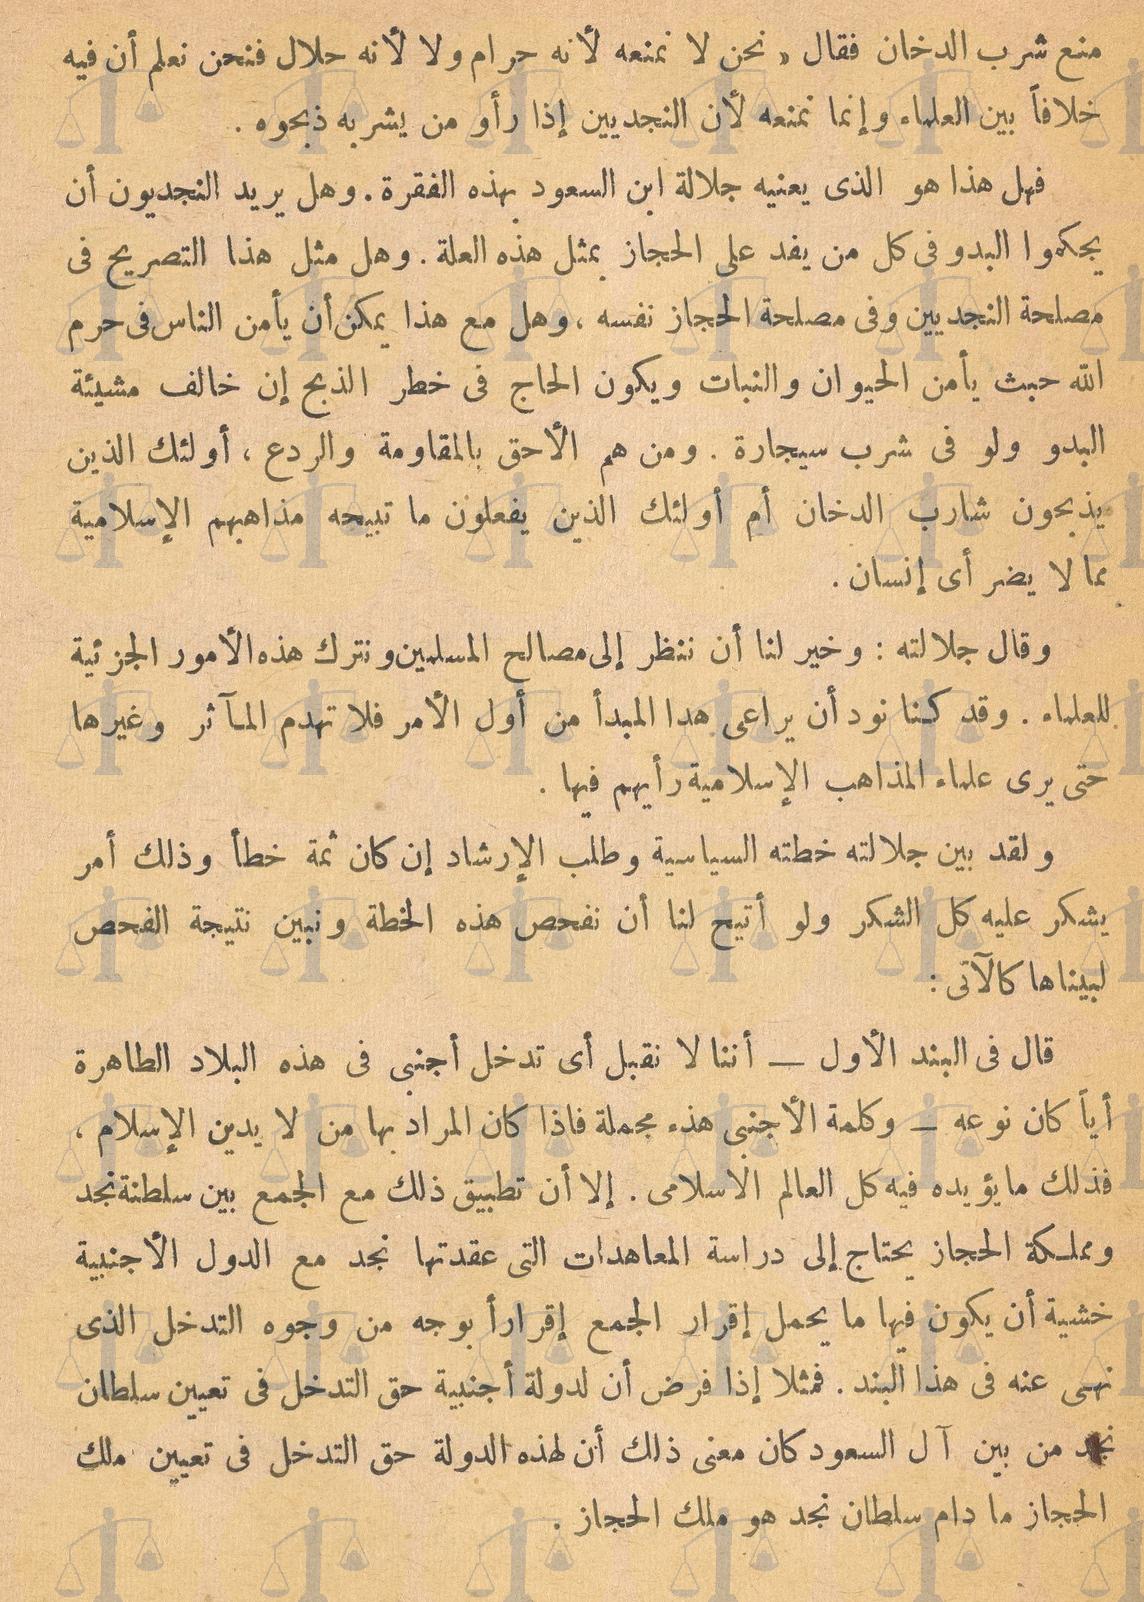 منع شرب الدخان فقال « نحن لا نمنعه لأنه حرام ولا لأنه حلال فنحن نعلم أن فيه
خلافاً بين العلماء وإنما نمنعه لأن النجديين إذا رأو من يشربه ذبحوه .
فهل هذا هو الذى يعنيه جلالة ابن السعود بهذه الفقرة . وهل يريد النجديون أن
يحكموا البدو فى كل من يفد على الحجاز بمثل هذه العلة . وهل مثل هذا التصريح فى
مصلحة النجديين وفى مصلحة الحجاز نفسه ، وهل مع هذا يمكن أن يأمن الناس فى حرم
الله حيث يأمن الحيوان والنبات ويكون الحاج فى خطر الذبح إن خالف مشيئة
البدو ولو فى شرب سيجارة . ومن هم الأحق بالمقاومة والردع ، أولئك الذين
يذبحون شارب الدخان أم أولئك الذين يفعلون ما تبيحه مذاهبهم الإسلامية
مما لا يضر أى إنسان .
وقال جلالته : وخير لنا أن ننظر إلى مصالح المسلمين ونترك هذه الأمور الجزئية
للعلماء . وقد كنا نود أن يراعى هدا المبدأ من أول الأمر فلا تهدم المآثر وغيرها
حتى يرى علماء المذاهب الإسلامية رأيهم فيها .
ولقد بين جلالته خطته السياسية وطلب الإرشاد إن كان ثمة خطأ وذلك أمر
يشكر عليه كل الشكر ولو أتيح لنا أن نفحص هذه الخطة ونبين نتيجة الفحص
لبيناها كالآتى :
قال فى البند الأول — أننا لا نقبل أى تدخل أجنبى فى هذه البلاد الطاهرة
أياً كان نوعه — وكلمة الأجنبى هذه مجملة فاذا كان المراد بها من لا يدين الإسلام ،
فذلك ما يؤيده فيه كل العالم الاسلامى . إلا أن تطبيق ذلك مع الجمع بين سلطنة نجد
ومملكة الحجاز يحتاج إلى دراسة المعاهدات التى عقدتها نجد مع الدول الأجنبية
خشية أن يكون فيها ما يحمل إقرار الجمع إقراراً بوجه من وجوه التدخل الذى
نهى عنه فى هذا البند . فمثلا إذا فرض أن لدولة أجنبية حق التدخل فى تعيين سلطان
نجد من بين آل السعود كان معنى ذلك أن لهذه الدولة حق التدخل فى تعيين ملك
الحجاز ما دام سلطان نجد هو ملك الحجاز .